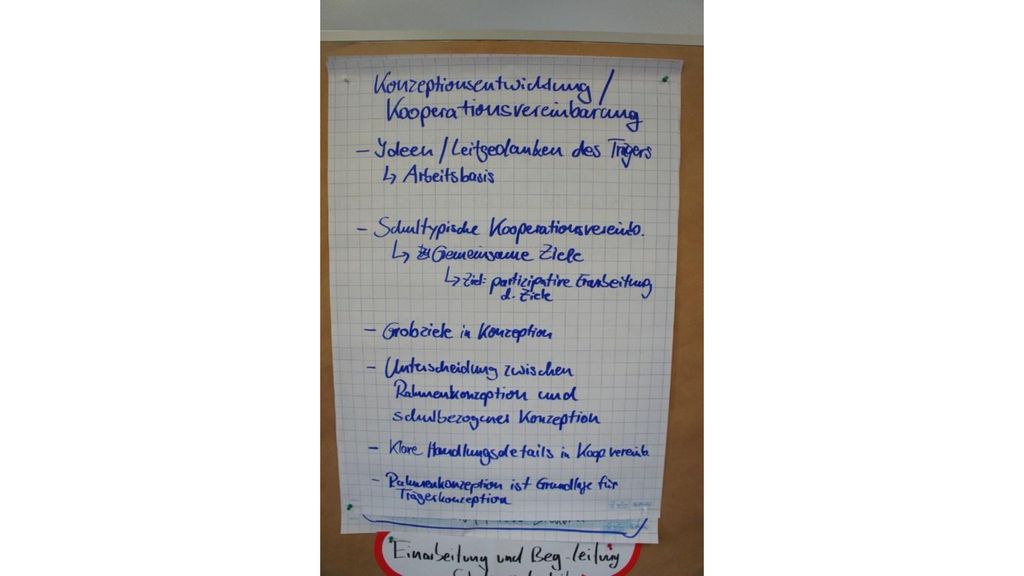 Konzeptionsentwicklung /
Kooperationsvereinbarung
- Ideen / Leitgedanken des Trägers
↳ Arbeitsbasis
- Schultypische Kooperationsvereinb.
↳ Gemeinsame Ziele
↳ Ziel: partizipative Erarbeitung
d. Ziele
- Grobziele in Konzeption
- Unterscheidung zwischen
Rahmenkonzeption und
schulbezogener Konzeption
- Klare Handlungsdetails in Koopvereinb.
- Rahmenkonzeption ist Grundlage für
Trägerkonzeption
Einarbeitung und Beg-leitung